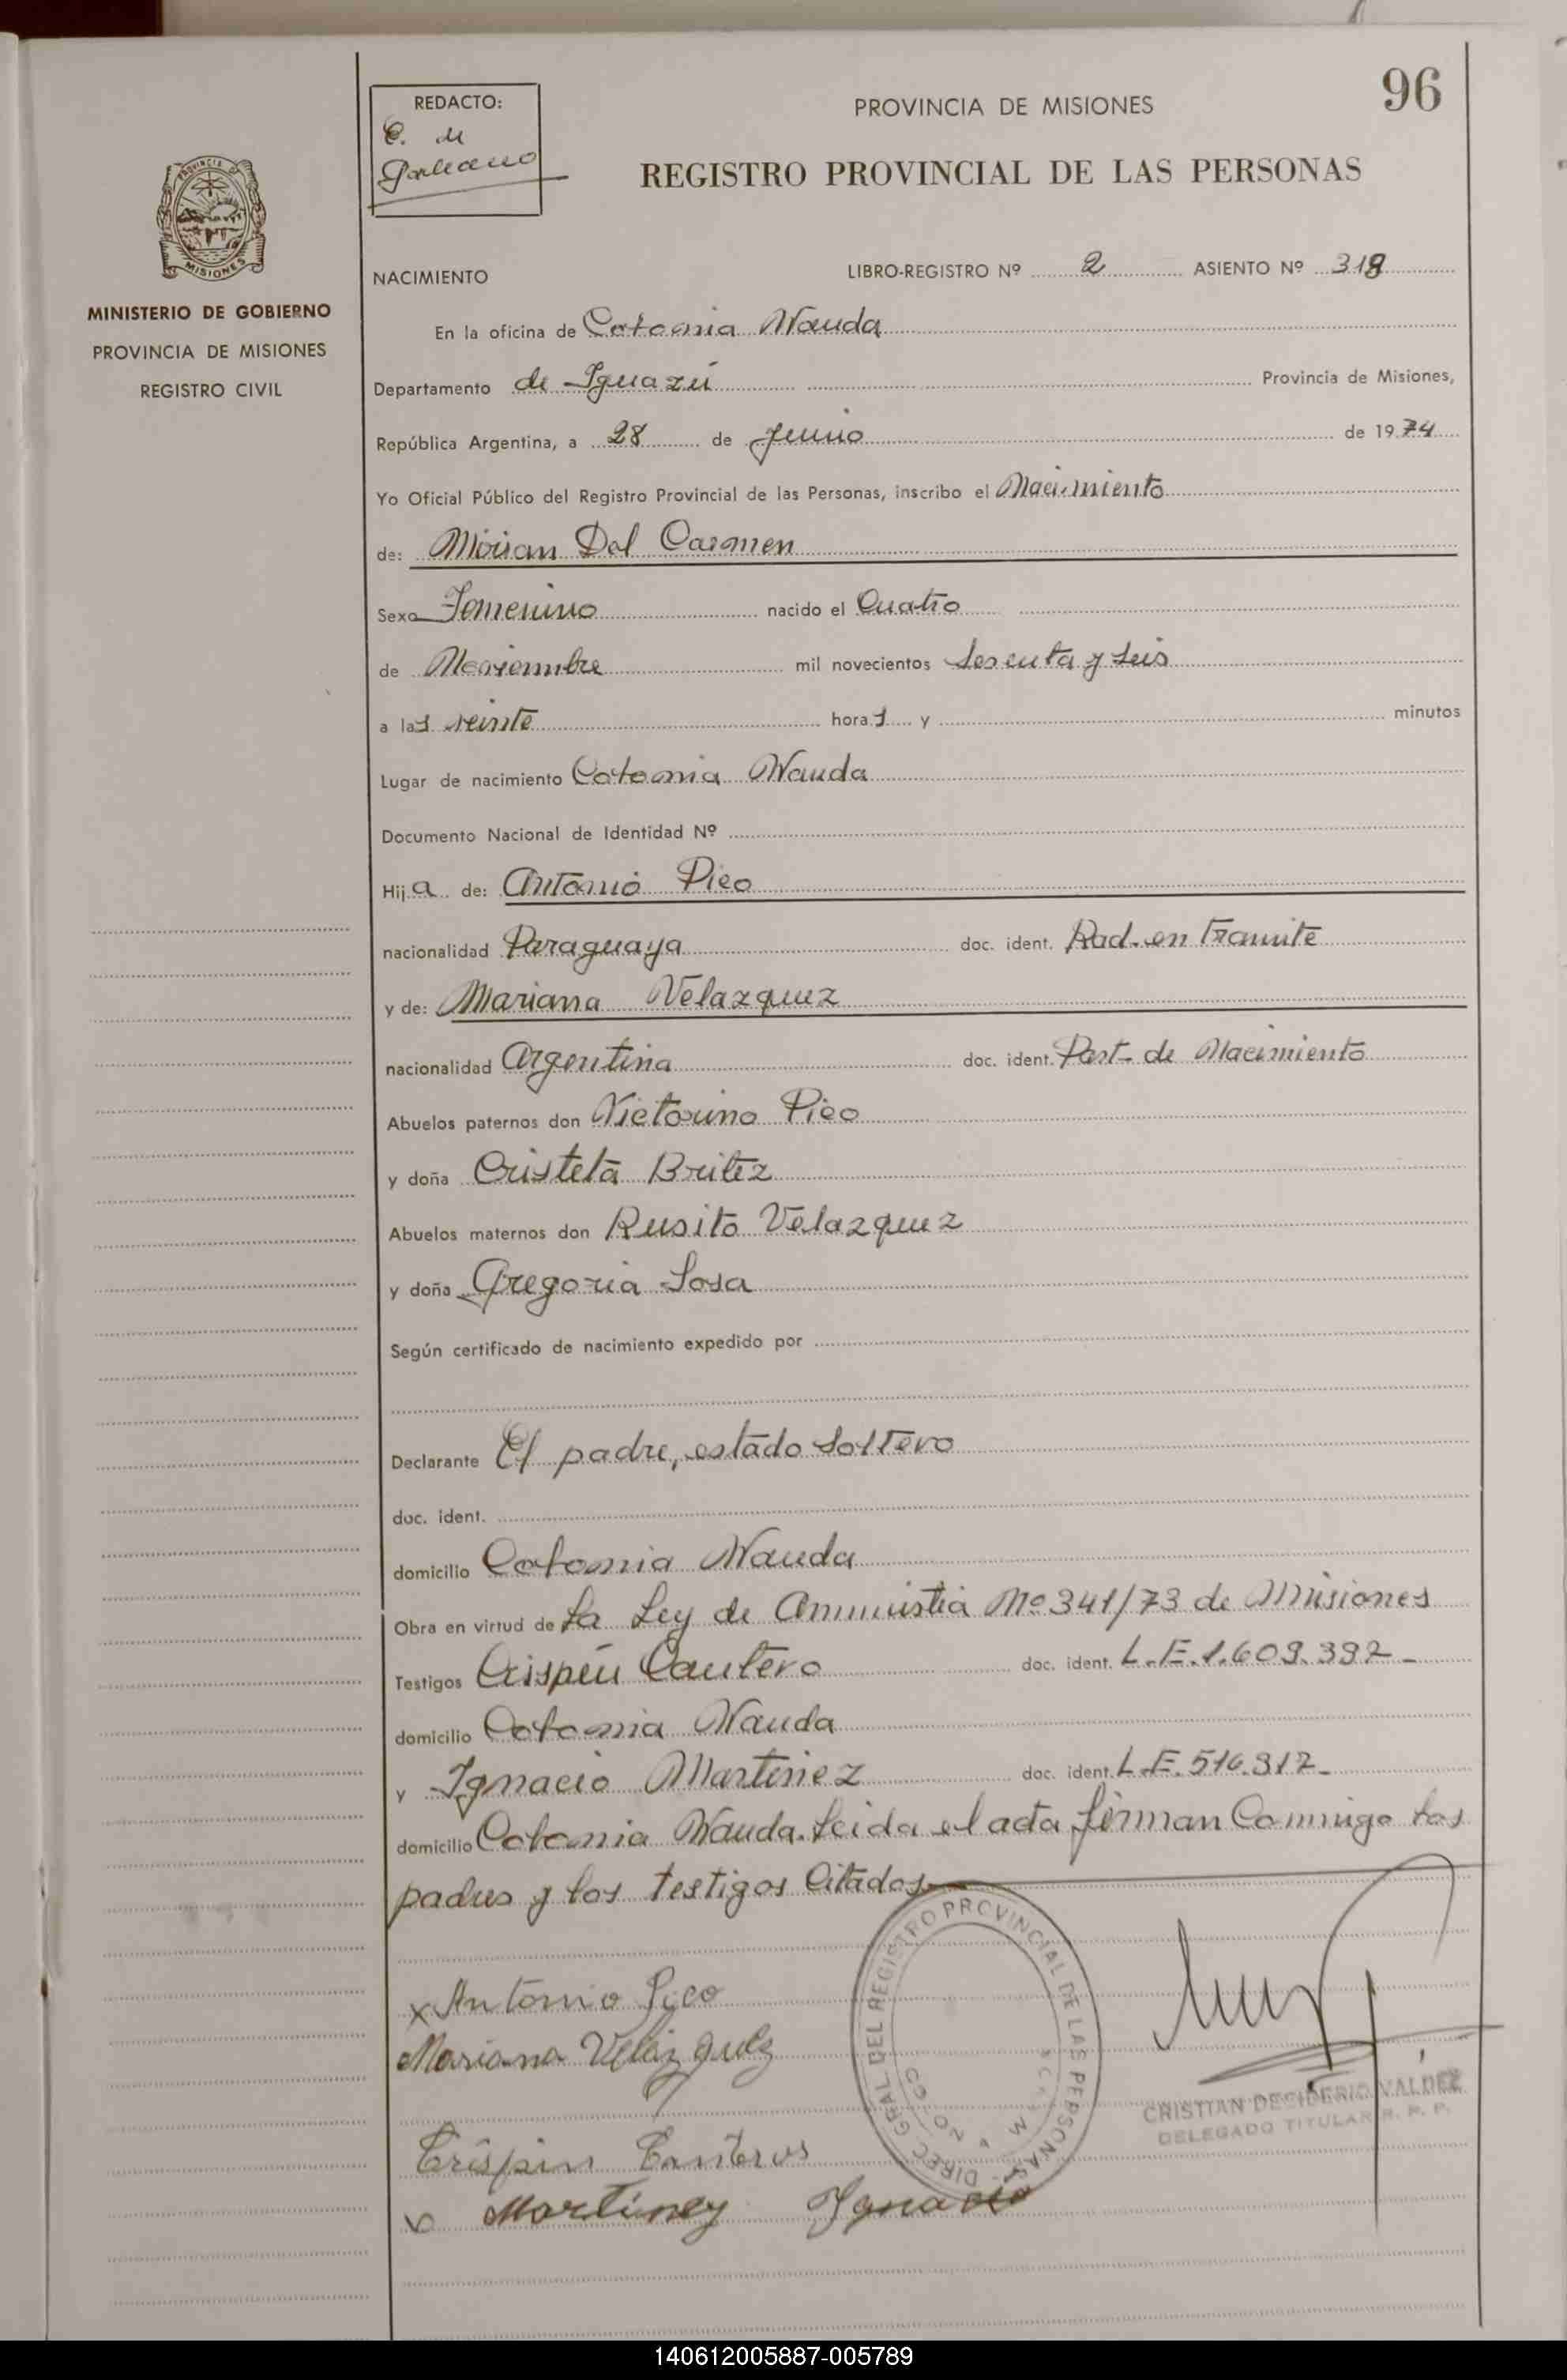 96
REDACTO:
C. M
Galeano
PROVINCIA DE MISIONES
REGISTRO PROVINCIAL DE LAS PERSONAS
PROVINCIA DE
MISIONES
MINISTERIO DE GOBIERNO
PROVINCIA DE MISIONES
REGISTRO CIVIL
NACIMIENTO LIBRO-REGISTRO Nº 2 ASIENTO Nº 318
En la oficina de Colonia Wanda
Departamento de Iguazú Provincia de Misiones,
República Argentina, a 28 de Junio de 1974
Yo Oficial Público del Registro Provincial de las Personas, inscribo el Nacimiento
de: Mirian Del Carmen
Sexo Femenino nacido el Cuatro
de Noviembre mil novecientos Sesenta y Seis
a las veinte horas y minutos
Lugar de nacimiento Colonia Wanda
Documento Nacional de Identidad Nº
Hija de: Antonio Pico
nacionalidad Paraguaya doc. ident. Rad. en Tramite
y de: Mariana Velazquez
nacionalidad Argentina doc. ident. Part. de Nacimiento
Abuelos paternos don Victorino Pico
y doña Cristeta Britez
Abuelos maternos don Rusito Velazquez
y doña Gregoria Sosa
Según certificado de nacimiento expedido por
Declarante El padre, estado Soltero
doc. ident.
domicilio Colonia Wanda
Obra en virtud de La Ley de Amnistia Nº 341/73 de Misiones
Testigos Crispín Cantero doc. ident. L.E.1.609.392_
domicilio Colonia Wanda
y Ignacio Martinez doc. ident. L.E.516.312_
domicilio Colonia Wanda. Leida el acta firman Conmigo los
padres y los testigos Citados
x Antonio Pico
Mariana Velazquez
Crispin Canteros
Martinez Ignacio
DIREC GRAL DEL REGISTRO PROVINCIAL DE LAS PERSONAS
CRISTIAN DESIDERIO VALDEZ
DELEGADO TITULAR R. P. P.
140612005887-005789